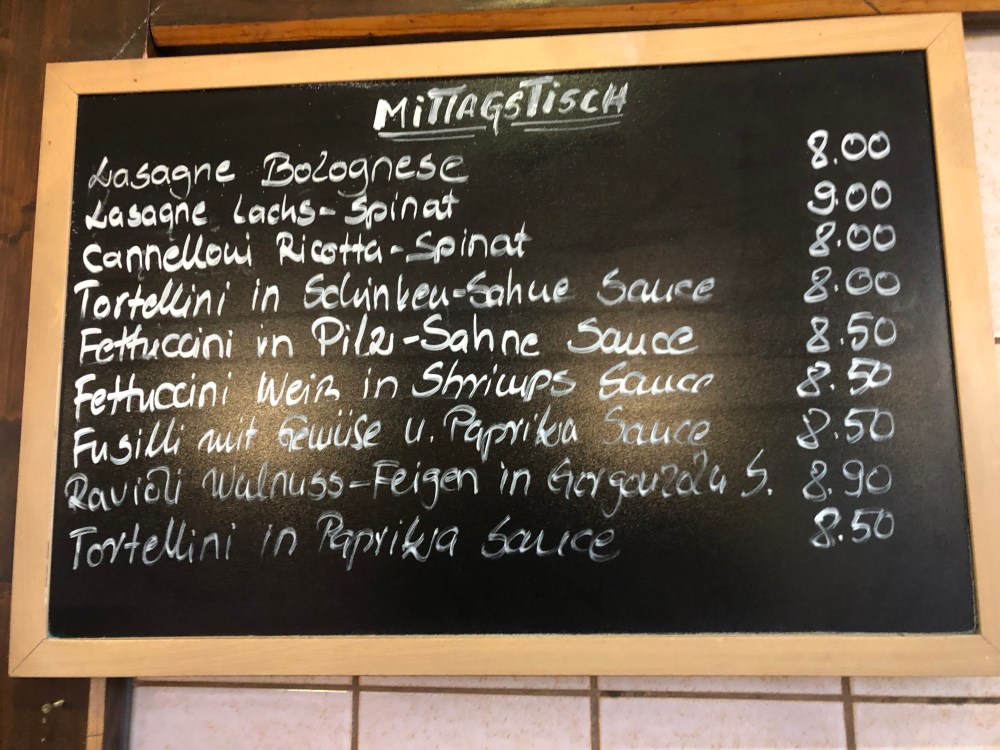 MITTAGSTISCH
Lasagne Bolognese 8.00
Lasagne Lachs-Spinat 9.00
Cannelloni Ricotta-Spinat 8.00
Tortellini in Schinken-Sahne Sauce 8.00
Fettuccini in Pilz-Sahne Sauce 8.50
Fettuccini Weiß in Shrimps Sauce 8.50
Fusilli mit Gemüse u. Paprika Sauce 8.50
Ravioli Walnuss-Feigen in Gorgonzola S. 8.90
Tortellini in Paprika Sauce 8.50